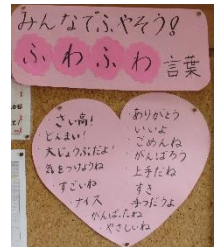 みんなでふやそう!
ふわふわ言葉
さい高!
どんまい!
大じょうぶだよ!
気をつけようね
すごいね
ナイス
ありがとう
いいよ
ごめんね
がんばろう
上手だね
すき
手つだうよ
がんばったね
やさしいね